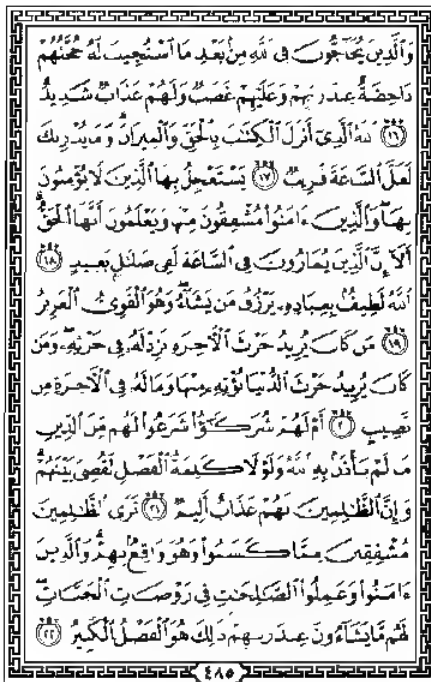 وَالَّذِينَ يُحَاجُّونَ فِي اللَّهِ مِنْ بَعْدِ مَا اسْتُجِيبَ لَهُ حُجَّتُهُمْ
دَاحِضَةٌ عِندَ رَبِّهِمْ وَعَلَيْهِمْ غَضَبٌ وَلَهُمْ عَذَابٌ شَدِيدٌ
﴿١٦﴾ اللَّهُ الَّذِي أَنزَلَ الْكِتَٰبَ بِالْحَقِّ وَالْمِيزَانَ وَمَا يُدْرِيكَ
لَعَلَّ السَّاعَةَ قَرِيبٌ ﴿١٧﴾ يَسْتَعْجِلُ بِهَا الَّذِينَ لَا يُؤْمِنُونَ
بِهَا وَالَّذِينَ ءَامَنُوا مُشْفِقُونَ مِنْهَا وَيَعْلَمُونَ أَنَّهَا الْحَقُّ
أَلَا إِنَّ الَّذِينَ يُمَارُونَ فِي السَّاعَةِ لَفِي ضَلَٰلٍ بَعِيدٍ ﴿١٨﴾
اللَّهُ لَطِيفٌ بِعِبَادِهِ يَرْزُقُ مَن يَشَاءُ وَهُوَ الْقَوِيُّ الْعَزِيزُ
﴿١٩﴾ مَن كَانَ يُرِيدُ حَرْثَ الْآخِرَةِ نَزِدْ لَهُ فِي حَرْثِهِ وَمَن
كَانَ يُرِيدُ حَرْثَ الدُّنْيَا نُؤْتِهِ مِنْهَا وَمَا لَهُ فِي الْآخِرَةِ مِن
نَّصِيبٍ ﴿٢٠﴾ أَمْ لَهُمْ شُرَكَٰٓؤُا شَرَعُوا لَهُم مِّنَ الدِّينِ
مَا لَمْ يَأْذَن بِهِ اللَّهُ وَلَوْلَا كَلِمَةُ الْفَصْلِ لَقُضِيَ بَيْنَهُمْ
وَإِنَّ الظَّٰلِمِينَ لَهُمْ عَذَابٌ أَلِيمٌ ﴿٢١﴾ تَرَى الظَّٰلِمِينَ
مُشْفِقِينَ مِمَّا كَسَبُوا وَهُوَ وَاقِعٌ بِهِمْ وَالَّذِينَ
ءَامَنُوا وَعَمِلُوا الصَّٰلِحَٰتِ فِي رَوْضَاتِ الْجَنَّاتِ
لَهُم مَّا يَشَاءُونَ عِندَ رَبِّهِمْ ذَٰلِكَ هُوَ الْفَضْلُ الْكَبِيرُ ﴿٢٢﴾
٤٨٥